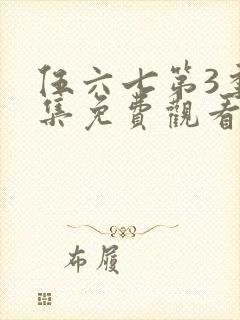 伍六七第3季
集免費觀看
布履